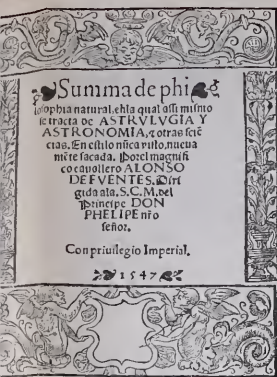 Summa de phi
losophia natural, enla qual assi mismo
se tracta de ASTRVLVGIA Y
ASTRONOMIA, ⁊ otras sciē
cias. En estilo nūca visto, nueua
mēte sacada. Por el magnifi
co cauallero ALONSO
DE FVENTES. Diri
gida ala. S. C. M. del
Principe DON
PHELIPE nr̄o
señor.
Con priuilegio Imperial.
1547